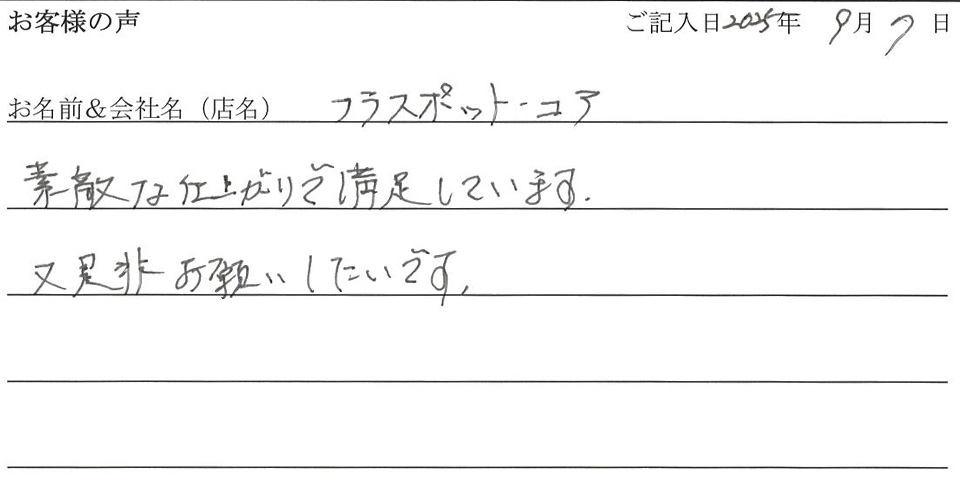 お客様の声 ご記入日2025年 9月 7日
お名前&会社名（店名） フラスポット・コア
素敵な仕上がりで満足しています.
又是非お願いしたいです,